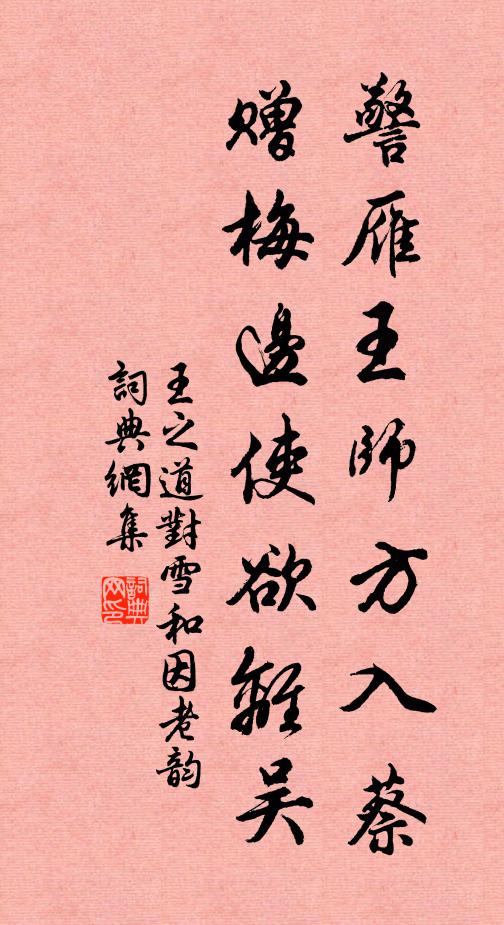 警雁王師方入蔡
贈梅邊使欲離吴
王之道對雪和因老韵
詞典網集
詞典
网印